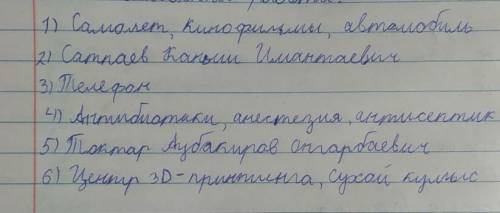 1) Самолет, кинофильмы, автомобиль
2) Сатпаев Каныш Имантаевич
3) Телефон
4) Антибиотики, анестезия, антисептик
5) Токтар Аубакиров Онгарбаевич
6) Центр 3D-принтинга, сухой кумыс